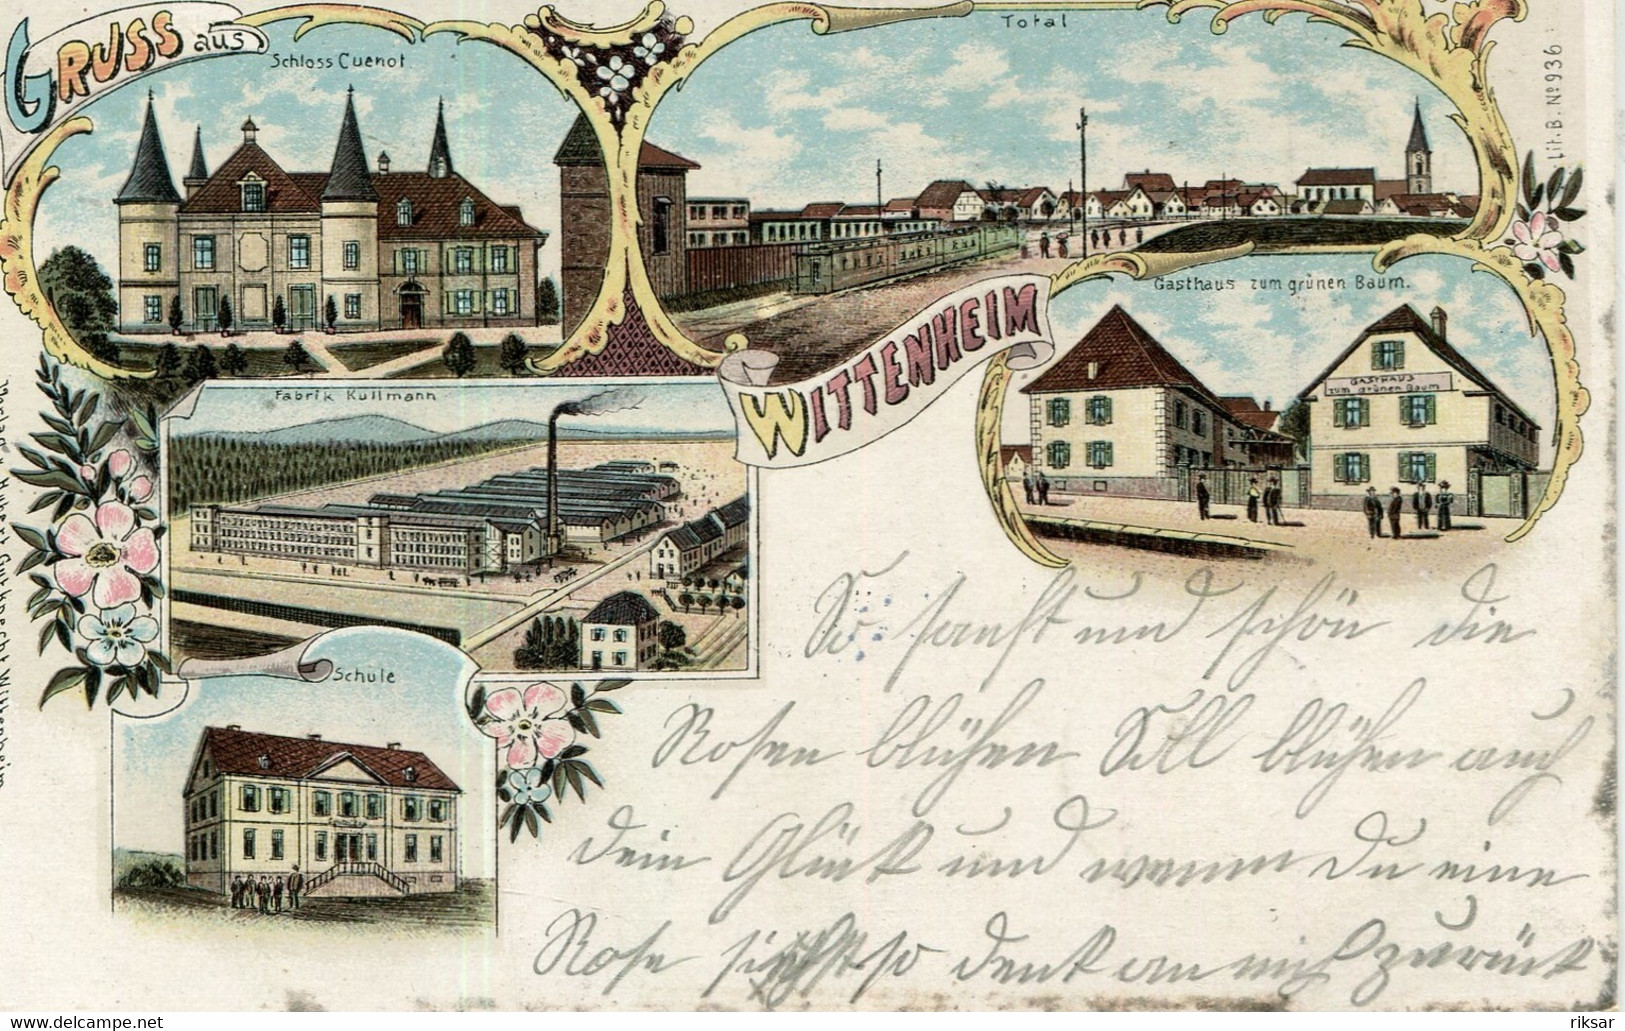 GRUSS aus
Schloss Cuenot.
Total
Lit. B. No 936
WITTENHEIM
Gasthaus zum grünen Baum.
GASTHAUS
zum grünen Baum
Fabrik Kullmann
Schule
Verlag v. Hubert Gutknecht Wittenheim
So sanft und schön die
Rosen blühen Soll blühen auch
dein Glück und wenn Du eine
Rose siehst so denk an mich zurück
delcampe.net
riksar